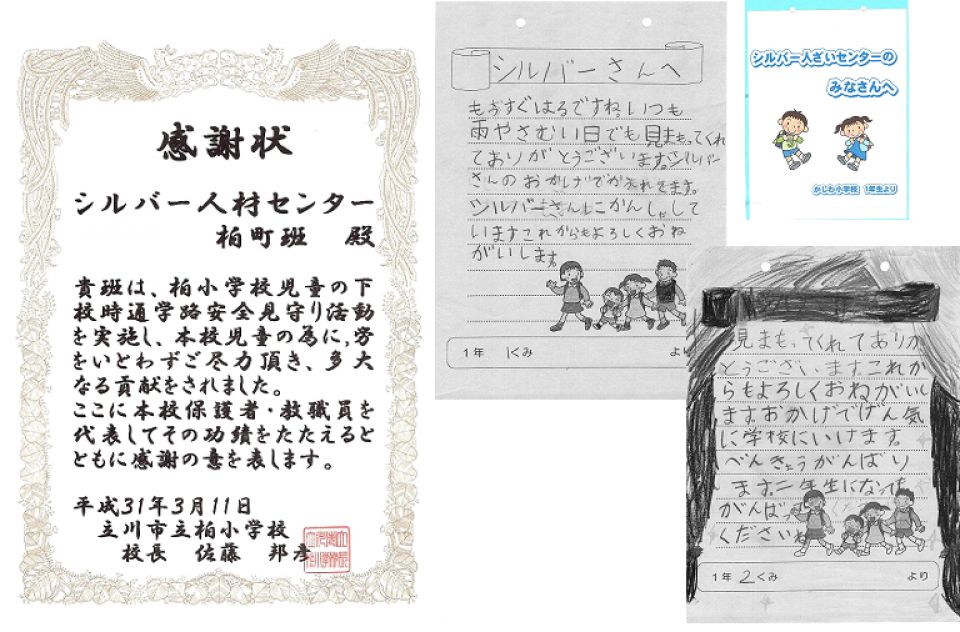 感謝状
シルバー人材センター
柏町班 殿
貴班は、柏小学校児童の下
校時通学路安全見守り活動
を実施し、本校児童の為に、労
をいとわずご尽力頂き、多大
なる貢献をされました。
ここに本校保護者・教職員を
代表してその功績をたたえると
ともに感謝の意を表します。
平成31年3月11日
立川市立柏小学校
校長 佐藤 邦彦
シルバーさんへ
もうすぐはるですね。いつも
雨やさむい日でも見まもってくれ
てありがとうございます。シルバー
さんのおかげで
シルバーさんにかんしゃして
いますこれからもよろしくおね
がいします
1年 1くみ より
シルバー人ざいセンターの
みなさんへ
かしわ小学校 1年生より
見まもってくれてありが
とうございます。これか
らもよろしくおねがいし
ます。おかげでげん気
に学校にいけます
べんきょうがんばり
ます。二年生になっても
がんばっ
くださいね
1年 2くみ より